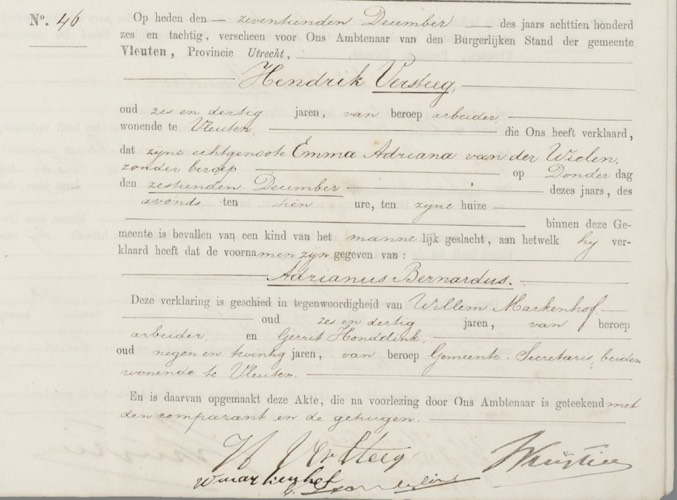 Nº. 46.
Op heden den zeventienden December des jaars achttien honderd
zes en tachtig, verscheen voor Ons Ambtenaar van den Burgerlijken Stand der gemeente
Vleuten, Provincie Utrecht,
Hendrik Versteeg,
oud zes en dertig jaren, van beroep arbeider,
wonende te Vleuten. die Ons heeft verklaard,
dat zijne echtgenoote Emma Adriana van der Wielen,
zonder beroep op Donderdag
den zestienden December dezes jaars, des
avonds ten tien ure, ten zijne huize
binnen deze Ge-
meente is bevallen van een kind van het mannelijk geslacht, aan hetwelk hij ver-
klaard heeft dat de voornamen zijn gegeven van :
Adrianus Bernardus.
Deze verklaring is geschied in tegenwoordigheid van Willem Markenhof
oud zes en dertig jaren, van beroep
arbeider, en Gerrit
oud negen en twintig jaren, van beroep Gemeente-Secretaris, beiden
wonende te Vleuten.
En is daarvan opgemaakt deze Akte, die na voorlezing door Ons Ambtenaar is geteekend met
den comparant en de getuigen.
H Versteeg